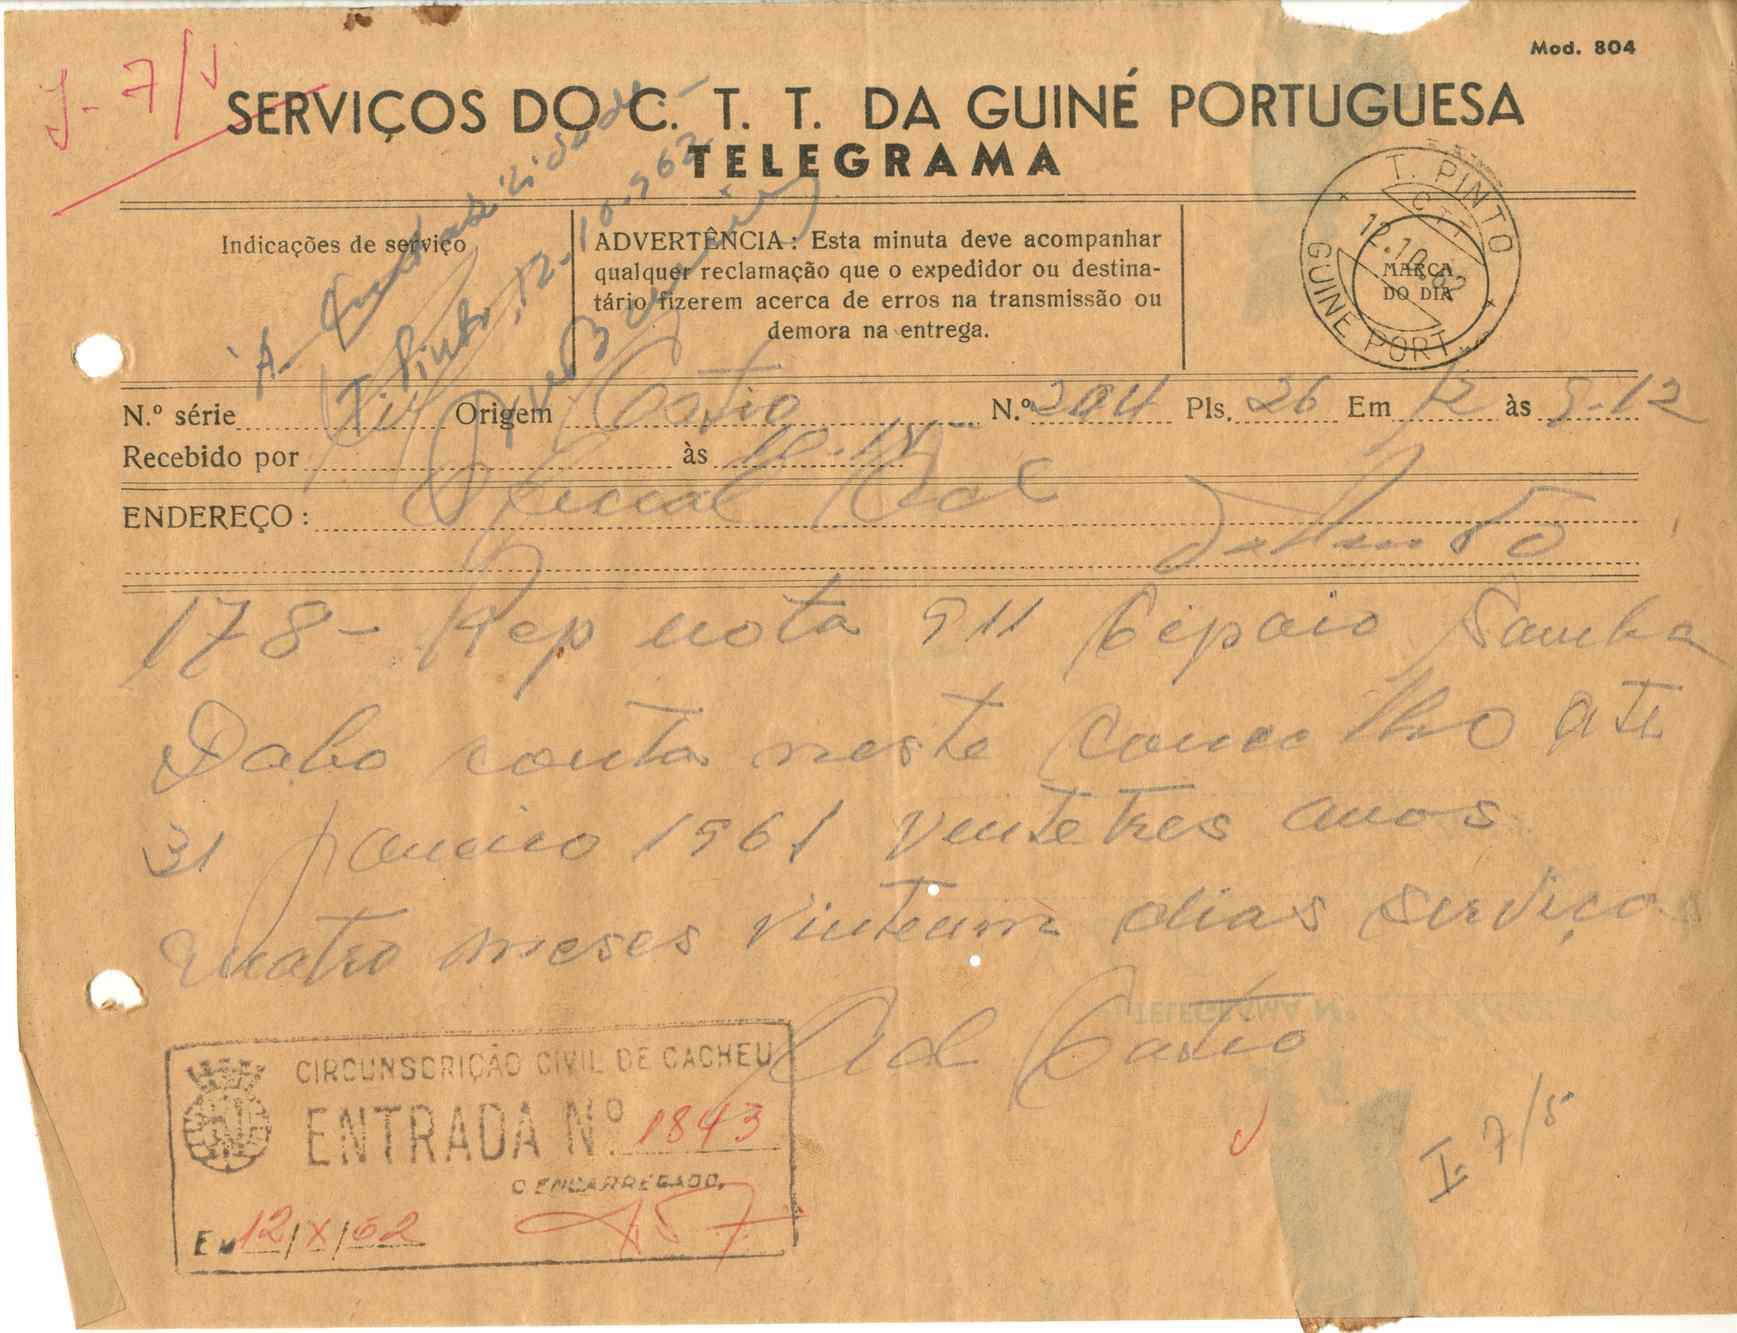 Mod. 804
J-7/J
SERVIÇOS DO C. T. T. DA GUINÉ PORTUGUESA
TELEGRAMA
À Contabilidade
T. Pinto, 12-10-962-
Indicações de serviço
ADVERTÊNCIA: Esta minuta deve acompanhar
qualquer reclamação que o expedidor ou destina-
tário fizerem acerca de erros na transmissão ou
demora na entrega.
T. PINTO
CTT
12.10.62
MARCA
DO DIA
GUINÉ PORT.
N.º série Origem Castio N.º 204 Pls. 26 Em 12 às 9-12
Recebido por às 10.14
ENDEREÇO:
178- Rep nota 911 Cipaio Samba
Dabo conta neste concelho ate
31 janeiro 1961 vintetres anos
quatro meses vinteum dias serviço
Adl Castio
TELEGRAMA N.º
CIRCUNSCRIÇÃO CIVIL DE CACHEU
ENTRADA Nº 1843
O ENCARREGADO,
Em 12/X/62
I-7/5